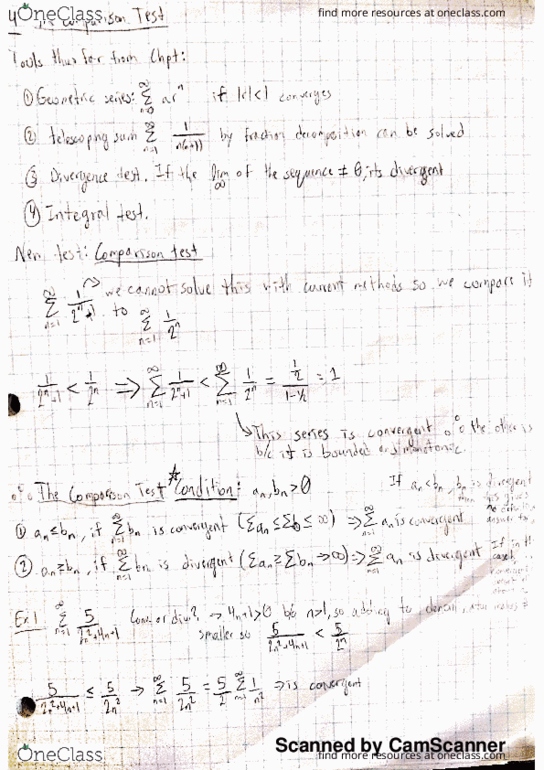 OneClass
find more resources at oneclass.com
Comparison Test
Tools thus far from Chpt:
① Geometric series: ∞ Σ n=0 ar^n if |r|<1 converges
② telescoping sum ∞ Σ n=1 1/(n(n+1)) by fraction decomposition can be solved
③ Divergence test. If the lim ∞ of the sequence ≠ 0, its divergent
④ Integral test.
New test: Comparison test
∞ Σ n=1 1/(2^n+1) → we cannot solve this with current methods so we compare it
to ∞ Σ n=1 1/2^n
1/(2^n+1) < 1/2^n ⇒ ∞ Σ n=1 1/(2^n+1) < ∞ Σ n=1 1/2^n = (1/2)/(1-1/2) = 1
↳ This series is convergent ∴ the other is
b/c it is bounded and monotonic.
∴ The Comparison Test * Condition: an, bn > 0
If an < bn, bn is divergent
① an ≤ bn, if ∞ Σ n=1 bn is convergent (Σan ≤ Σb ≤ ∞) ⇒ ∞ Σ n=1 an is convergent
② an ≥ bn, if ∞ Σ n=1 bn is divergent (Σan ≥ Σbn → ∞) ⇒ ∞ Σ n=1 an is divergent
Ex 1 ∞ Σ n=1 5/(2n²+4n+1) Conv. or div? → 4n+1>0 b/c n>1, so adding to
smaller so 5/(2n²+4n+1) < 5/2n²
5/(2n²+4n+1) ≤ 5/2n² → ∞ Σ n=1 5/2n² = 5/2 ∞ Σ n=1 1/n² ⇒ is convergent
Scanned by CamScanner
OneClass
find more resources at oneclass.com